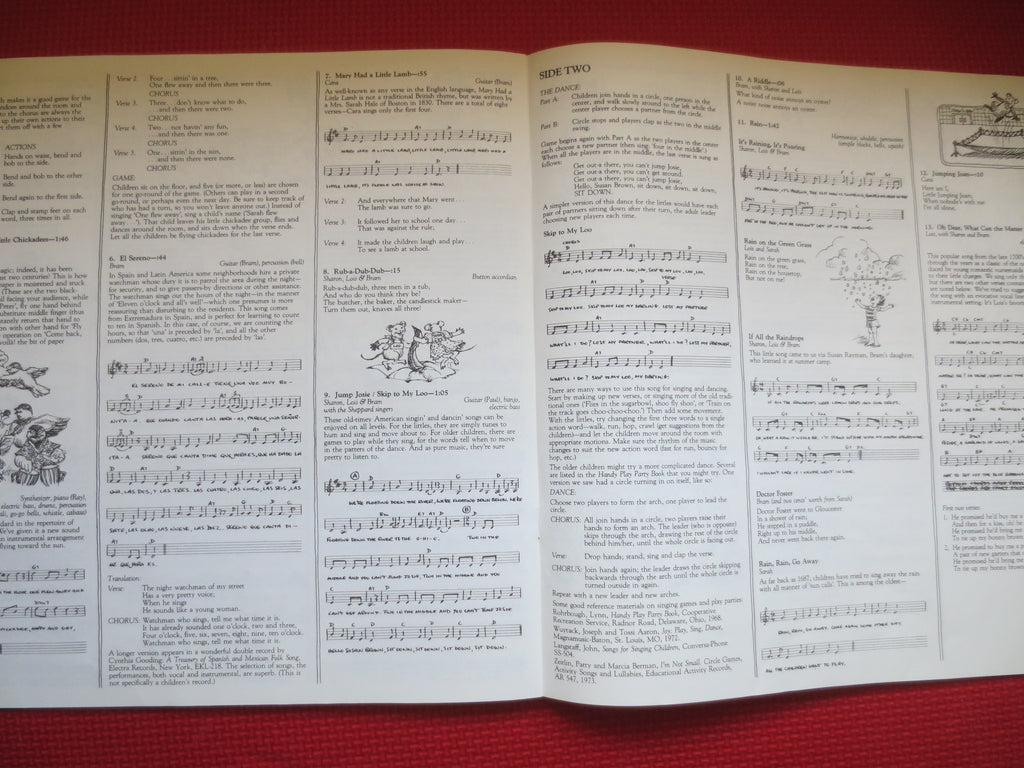 makes it a good game for the
around the room and
to the chorus are always the
up their own actions to their
them off with a few
ACTIONS
Hands on waist, bend and
bob to the side.
Bend and bob to the other
side.
Bend again to the first side.
Clap and stamp feet on each
word, three times in all.
Chickadees—1:46
magic; indeed, it has been
past two centuries! This is how
paper is moistened and stuck
(These are the two black-
facing your audience, while
Peter', fly one hand behind
substitute middle finger (thus
return that hand to
on with other hand for 'Fly
operation on 'Come back,
voila! the bit of paper
Synthesizer, piano (Ray),
electric bass, drums, percussion
go-go bells, whistle, cabasa)
standard in the repertoire of
We've given it a new sound
instrumental arrangement
flying toward the sun.
Verse 2: Four . . . sittin' in a tree,
One flew away and then there were three.
CHORUS
Verse 3: Three . . . don't know what to do,
. . . and then there were two.
CHORUS
Verse 4: Two . . . not havin' any fun,
. . . and then there was one.
CHORUS
Verse 5: One . . . sittin' in the sun,
. . . and then there were none.
CHORUS
GAME:
Children sit on the floor, and five (or more, or less) are chosen
for one go-round of the game. (Others can play in a second
go-round, or perhaps even the next day. Be sure to keep track of
who has had a turn, so you won't leave anyone out.) Instead of
singing 'One flew away', sing a child's name ('Sarah flew
away . . .'). That child leaves his little chickadee group, flies and
dances around the room, and sits down when the verse ends.
Let all the children be flying chickadees for the last verse.
6. El Sereno—:44
Bram Guitar (Bram), percussion (bell)
In Spain and Latin America some neighborhoods hire a private
watchman whose duty it is to patrol the area during the night—
for security, and to give passers-by directions or other assistance.
The watchman sings out the hours of the night—in the manner
of 'Eleven o'clock and all's well'—which one presumes is more
reassuring than disturbing to the residents. This song comes
from Extremadura in Spain, and is perfect for learning to count
to ten in Spanish. In this case, of course, we are counting the
hours, so that 'una' is preceded by 'la', and all the other
numbers (dos, tres, cuatro, etc.) are preceded by 'las'.
EL SERENO DE MI CALL-E TIENE UNA VOZ MUY BO-
NIT-A · QUE CUANDO CANTA LAS HORAS PARECE UNA SEÑOR-
ITA-A. SERENO QUE CANTA DIME QUE HORAES, QUE HA DADO LA
UNA, LAS DOS, Y LAS TRES, LAS CUATRO, LAS CINCO, LAS SEIS, LAS
SIETE, LAS OCHO, LAS NUEVE, LAS DIEZ. SERENO QUE CANTA DI-
ME QUE HORA ES.
Translation:
Verse: The night watchman of my street
Has a very pretty voice;
When he sings
He sounds like a young woman.
CHORUS: Watchman who sings, tell me what time it is.
It has already sounded one o'clock, two and three,
Four o'clock, five, six, seven, eight, nine, ten o'clock.
Watchman who sings, tell me what time it is.
A longer version appears in a wonderful double record by
Cynthia Gooding: A Treasury of Spanish and Mexican Folk Song,
Electra Records, New York, EKL-218. The selection of songs, the
performances, both vocal and instrumental, are superb. (This is
not specifically a children's record.)
7. Mary Had a Little Lamb—:55
Cara Guitar (Bram)
As well-known as any verse in the English language, Mary Had a
Little Lamb is not a traditional British rhyme, but was written by
a Mrs. Sarah Hale of Boston in 1830. There are a total of eight
verses—Cara sings only the first four.
MARY HAD A LITTLE LAMB, LITTLE LAMB, LITTLE LAMB, MARY HAD A
LITTLE LAMB, ITS FLEECE WAS WHITE AS SNOW.
Verse 2: And everywhere that Mary went . . .
The lamb was sure to go.
Verse 3: It followed her to school one day . . .
That was against the rule;
Verse 4: It made the children laugh and play . . .
To see a lamb at school.
8. Rub-a-Dub-Dub—:15
Sharon, Lois & Bram Button accordian
Rub-a-dub-dub, three men in a rub,
And who do you think they be?
The butcher, the baker, the candlestick maker—
Turn them out, knaves all three!
9. Jump Josie / Skip to My Loo—1:05
Sharon, Lois & Bram Guitar (Paul), banjo,
with the Sheppard singers electric bass
These old-times American singin' and dancin' songs can be
enjoyed on all levels. For the littles, they are simply tunes to
hum and sing and move about to. For older children, there are
games to play while they sing, for the words tell when to move
in the pattern of the dance. And as pure music, they're sure
pretty to listen to.
WE'RE FLOATING DOWN THE RIVER, WE'RE FLOATING DOWN BELOW, WE'RE
FLOATING DOWN THE RIVER TO THE O-HI-O. TWO IN THE
MIDDLE AND YOU CAN'T JUMP JOSIE, TWO IN THE MIDDLE AND YOU
CAN'T GET AROUND. TWO IN THE MIDDLE AND YOU CAN'T JUMP JOSIE
HELLO SUSAN BROWN, SIT DOWN, SIT DOWN, SIT DOWN, SIT DOWN.
SIDE TWO
THE DANCE:
Part A: Children join hands in a circle, one person in the
center, and walk slowly around to the left while the
center player chooses a partner from the circle.
Part B: Circle stops and players clap as the two in the middle
swing.
Game begins again with Part A as the two players in the center
each choose a new partner (then sing, 'four in the middle'.)
When all the players are in the middle, the last verse is sung as
follows:
Get out-a there, you can't jump Josie,
Get out-a there, you can't get around.
Get out-a there, you can't jump Josie,
Hello, Susan Brown, sit down, sit down, sit down,
SIT DOWN.
A simpler version of this dance for the littles would have each
pair of partners sitting down after their turn, the adult leader
choosing new players each time.
Skip to My Loo
CHORUS
LOO, LOO, SKIP TO MY LOO, LOO, LOO, SKIP TO MY LOO, LOO,
LOO, SKIP TO MY LOO, SKIP TO MY LOO, MY DARLING. LOST MY PARTNER
WHAT'LL I DO? LOST MY PARTNER, WHAT'LL I DO? LOST MY PARTNER,
WHAT'LL I DO? SKIP TO MY LOO, MY DARLING.
There are many ways to use this song for singing and dancing.
Start by making up new verses, or singing more of the old traditional
ones ('Flies in the sugarbowl, shoo fly shoo', or 'Train on
the track goes choo-choo-choo'.) Then add some movement.
With the littles, try changing the first three words to a single
action word—walk, run, hop, crawl (get suggestions from the
children)—and let the children move around the room with
appropriate motions. Make sure the rhythm of the music
changes to suit the new action word (fast for run, bouncy for
hop, etc.)
The older children might try a more complicated dance. Several
are listed in the Handy Play Party Book that you might try. One
version we saw had a circle turning in on itself, like so:
DANCE:
Choose two players to form the arch, one player to lead the
circle.
CHORUS: All join hands in a circle, two players raise their
hands to form an arch. The leader (who is opposite)
skips through the arch, drawing the rest of the circle
behind him/her, until the whole circle is facing out.
Verse: Drop hands; stand, sing and clap the verse.
CHORUS: Join hands again; the leader draws the circle skipping
backwards through the arch until the whole circle is
turned outside in again.
Repeat with a new leader and new arches.
Some good reference materials on singing games and play parties:
Rohrbough, Lynn, Handy Play Party Book, Cooperative
Recreation Service, Radnor Road, Delaware, Ohio, 1968.
Wuytack, Joseph and Tossi Aaron, Joy: Play, Sing, Dance,
Magnamusic-Baton, St. Louis, MO, 1972.
Langstaff, John, Songs for Singing Children, Converse-Phone
SS-504.
Zeitlin, Patty and Marcia Berman, I'm Not Small. Circle Games,
Activity Songs and Lullabies, Educational Activity Records,
AR 547, 1973.
10. A Riddle—:06
Bram, with Sharon and Lois
What kind of noise annoys an oyster?
A noisy noise annoys an oyster.
11. Rain—1:42
Harmonica, ukulele, percussion
(temple blocks, bells, squish)
It's Raining, It's Pouring
Sharon, Lois & Bram
Rain on the Green Grass
Lois and Sharon
Rain on the green grass,
Rain on the tree;
Rain on the housetop,
But not on me!
If All the Raindrops
Sharon, Lois & Bram
This little song came to us via Susan Rayman, Bram's daughter,
who learned it at summer camp.
Doctor Foster
Bram (and 'not once' worth from Sarah)
Doctor Foster went to Gloucester
In a shower of rain;
He stepped in a puddle,
Right up to his middle,
And never went there again.
Rain, Rain, Go Away
Sarah
As far back as 1687, children have tried to sing away the rain
with all manner of 'rain calls'. This is among the oldest—
RAIN, RAIN, GO AWAY, COME AGAIN SOME OTHER DAY,
ALL THE CHILDREN WANT TO PLAY.
12. Jumping Joan—:10
Cara
Here am I,
Little Jumping Joan;
When nobody's with me
I'm all alone.
13. Oh Dear, What Can the Matter
Lois, with Sharon and Bram
This popular song from the late 1700's
through the years as a classic of the
duced by young romantic
to their little changes. We sing only
but there are two other verses
are noted below. We've tried to suggest
the song with an evocative vocal line
instrumental setting. It's Lois's favorite
First two verses:
1. He promised he'd buy me a
And then for a kiss, oh! he
He promised he'd bring me
To tie up my bonny brown
2. He promised to buy me a
A pair of new garters that
He promised he'd bring me
To tie up my bonny brown